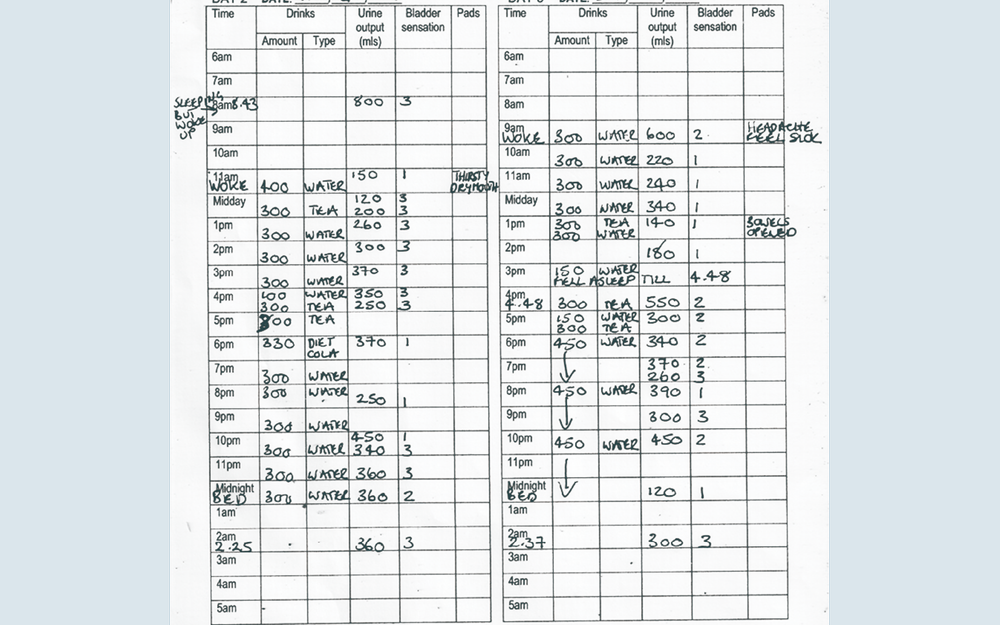 DAY 2 DATE:
Time Drinks Urine output (mls) Bladder sensation Pads
Amount Type
6am
7am
SLEEPING BUT WOKE UP 8am 8.43 800 3
9am
10am
11am WOKE 400 WATER 150 1 THIRSTY DRY MOUTH
Midday 120 3
300 TEA 200 3
1pm 300 WATER 260 3
2pm 300 WATER 300 3
3pm 300 WATER 370 3
4pm 100 WATER 350 3
300 TEA 250 3
5pm 300 TEA
6pm 330 DIET COLA 370 1
7pm 300 WATER
8pm 300 WATER 250 1
9pm 300 WATER
10pm 450 1
300 WATER 340 3
11pm 300 WATER 360 3
Midnight BED 300 WATER 360 2
1am
2am 2.25 360 3
3am
4am
5am
DAY 3 DATE:
Time Drinks Urine output (mls) Bladder sensation Pads
Amount Type
6am
7am
8am
9am WOKE 300 WATER 600 2 HEADACHE FEEL SICK
10am 300 WATER 220 1
11am 300 WATER 240 1
Midday 300 WATER 340 1
1pm 300 TEA 140 1 BOWELS OPENED
300 WATER
2pm 180 1
3pm 150 WATER
FELL ASLEEP TILL 4.48
4pm 4.48 300 TEA 550 2
5pm 150 WATER 300 2
300 TEA
6pm 450 WATER 340 2
7pm 370 2
260 3
8pm 450 WATER 390 1
9pm 300 3
10pm 450 WATER 450 2
11pm
Midnight BED 120 1
1am
2am 2.37 300 3
3am
4am
5am